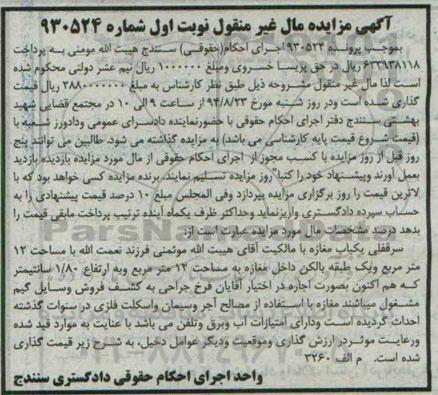 آگهی مزایده مال غیر منقول نوبت اول شماره ۹۳۰۵۲۴
بموجب پرونده ۹۳۰۵۲۴ اجرای احکام(حقوقی) سنندج هیبت الله مومنی به پرداخت
۶۳۳۹۳۸۱۱۸ ریال در حق پریسا خسروی ومبلغ ۱۰۰۰۰۰۰ ریال نیم عشر دولتی محکوم شده
است لذا مال غیر منقول مشروحه ذیل طبق نظر کارشناس به مبلغ ۲۸۸۰۰۰۰۰۰۰ ریال قیمت
گذاری شده است ودر روز شنبه مورخ ۹۴/۸/۲۳ از ساعت ۹ الی ۱۰ در مجتمع قضایی شهید
بهشتی سنندج دفتر اجرای احکام حقوقی با حضورنماینده دادسرای عمومی ودادورز شعبه با
(قیمت شروع قیمت پایه کارشناسی می باشد) به مزایده گذاشته می شود. طالبین می توانند پنج
روز قبل از روز مزایده با کسب مجوز از اجرای احکام حقوقی از مال مورد مزایده بازدید بازدید
بعمل آورند وپیشنهاد خود را کتبا"روز مزایده تسلیم نمایند. برنده مزایده کسی خواهد بود که با
لاترین قیمت را روز برگزاری مزایده بپردازد وفی المجلس مبلغ ۱۰ درصد قیمت پیشنهادی را به
حساب سپرده دادگستری واریزنماید وحداکثر ظرف یکماه آینده ترتیب پرداخت مابقی قیمت را
بدهد درصد مشخصات مال مورد مزایده عبارت است از:
سرقفلی یکباب مغازه با مالکیت آقای هیبت الله موئمنی فرزند نعمت الله با مساحت ۱۲
متر مربع ویک طبقه بالکن داخل مغازه به مساحت ۱۲ متر مربع وبه ارتفاع ۱/۸۰ سانتیمتر
که هم اکنون بصورت اجاره در اختیار آقایان فرخ جراحی به کشف فروش وسایل گیم
مشغول میباشند مغازه با استفاده از مصالح آجر وسیمان واسکلت فلزی در سنوات گذشته
احداث گردیده است ودارای امتیازات آب وبرق وتلفن می باشد با عنایت به موارد قید شده
ورعایت موثردر ارزش گذاری وموقعیت ودیگر عوامل دخیل، به شرح زیر قیمت گذاری
شده است. م الف ۳۲۶۰
واحد اجرای احکام حقوقی دادگستری سنندج